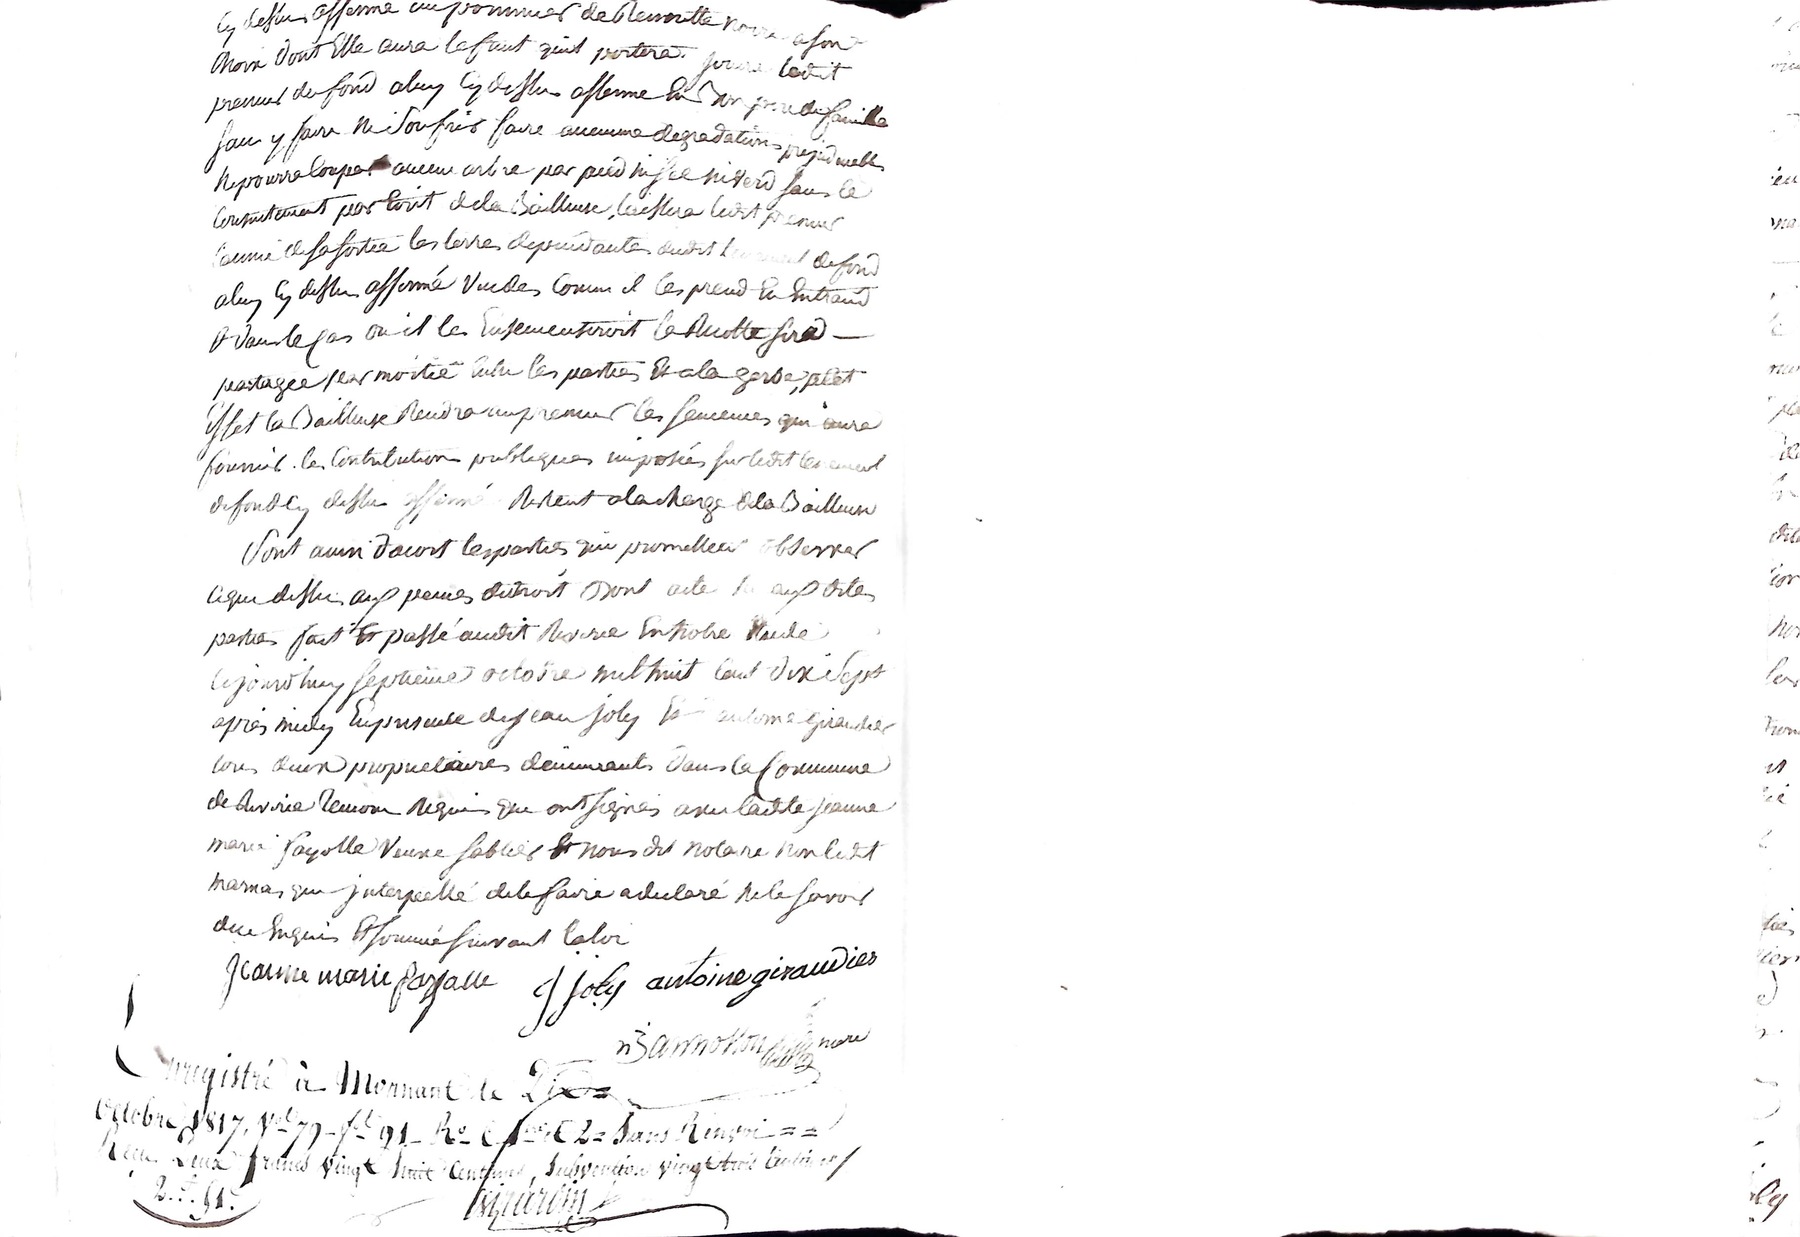 cy dessus affermé un pommier de Renette noire a son
choix dont Elle aura le fruit quil portera. jouira ledit
preneur du fond a luy cy dessus affermé En bon pere de famille
sans y faire Ni soufrir faire aucunne degradations prejudiciables
Ne poura Couper aucun arbre par pied ni sec ni verd sans le
consentement par Ecrit de la Bailleuse, laissera ledit preneur
l'année de sa sortie les terres dependantes dudit tenement de fond
a luy cy dessus affermé Vuides Comme il les prend En Entrand
Et dans le Cas ou il les Ensemenseroit la Recolte sera
partagée par moitié Entre les parties Et a la gerbe, a cet
Effet la Bailleuse Rendra au preneur les semences qu'aura
fournit. les Contributions publiques imposées sur ledit tenement
de fond cy dessus affermé Restent a la charge de la Bailleuse
Sont ainsi d'acort les parties qui promettent observer
ce que dessus aux peines de droit Dont acte lu aux dites
parties fait Et passé audit Riverie En notre Etude
cejourd'huy septieme octobre mil huit cent dix Sept
après midy En presence de jean joly Et antoine giraudier
tous deux proprietaires demeurants dans la Commune
de Riverie temoins Requis qui ont signés avec ladite jeanne
marie fayolle Veuve sablier Et nous dit notaire non ledit
marnas qui jnterpellé de le faire a declaré Ne le savoir
de ce Enquis Et sommé suivant la loi
jeanne marie fayolle j joly antoine giraudier
nre
Enregistré à Mornant le Dix
Octobre 1817, Vol 79 fol 91 Ro C 1re C 2 = Sans Renvoi = =
Reçu Deux francs vingt huit Centimes, Subvention vingt trois Centimes /
2.f 51.c